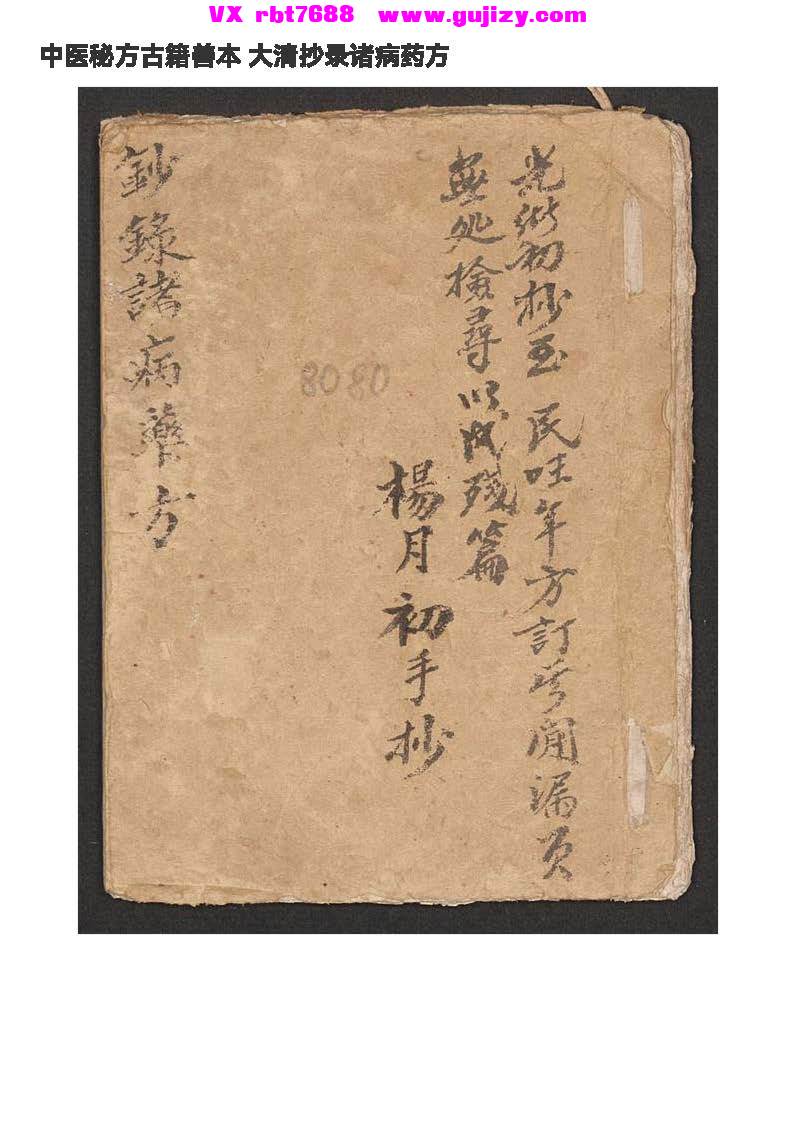 VX rbt7688 www.gujizy.com
中医秘方古籍善本 大清抄录诸病药方
光衍初抄至民旺年方訂考闻漏页
無処檢尋以成殘篇
楊月初手抄
8080
鈔錄諸病藥方